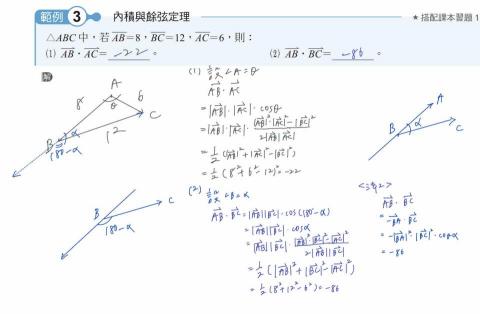 範例 3 內積與餘弦定理
★ 搭配課本習題 1
△ABC 中,若 AB=8,BC=12,AC=6,則:
(1) AB · AC= -22 。 (2) AB · BC= -86 。
解
A
8
θ
6
B
C
12
180-α
B
C
180-α
(1) 設∠A=θ
AB · AC
=|AB|·|AC|·cosθ
=|AB|·|AC|· (|AB|²+|AC|²-|BC|²)/(2|AB||AC|)
=1/2(|AB|²+|AC|²-|BC|²)
=1/2(8²+6²-12²)=-22
(2) 設∠B=α
AB · BC=|AB||BC|·cos(180-α)
=-|AB||BC|·cosα
=-|AB||BC|· (|AB|²+|BC|²-|AC|²)/(2|AB||BC|)
=-1/2(|AB|²+|BC|²-|AC|²)
=-1/2(8²+12²-6²)=-86
A
B
α
C
<法2>
AB · BC
=-BA · BC
=-|BA|·|BC|·cosα
=-86